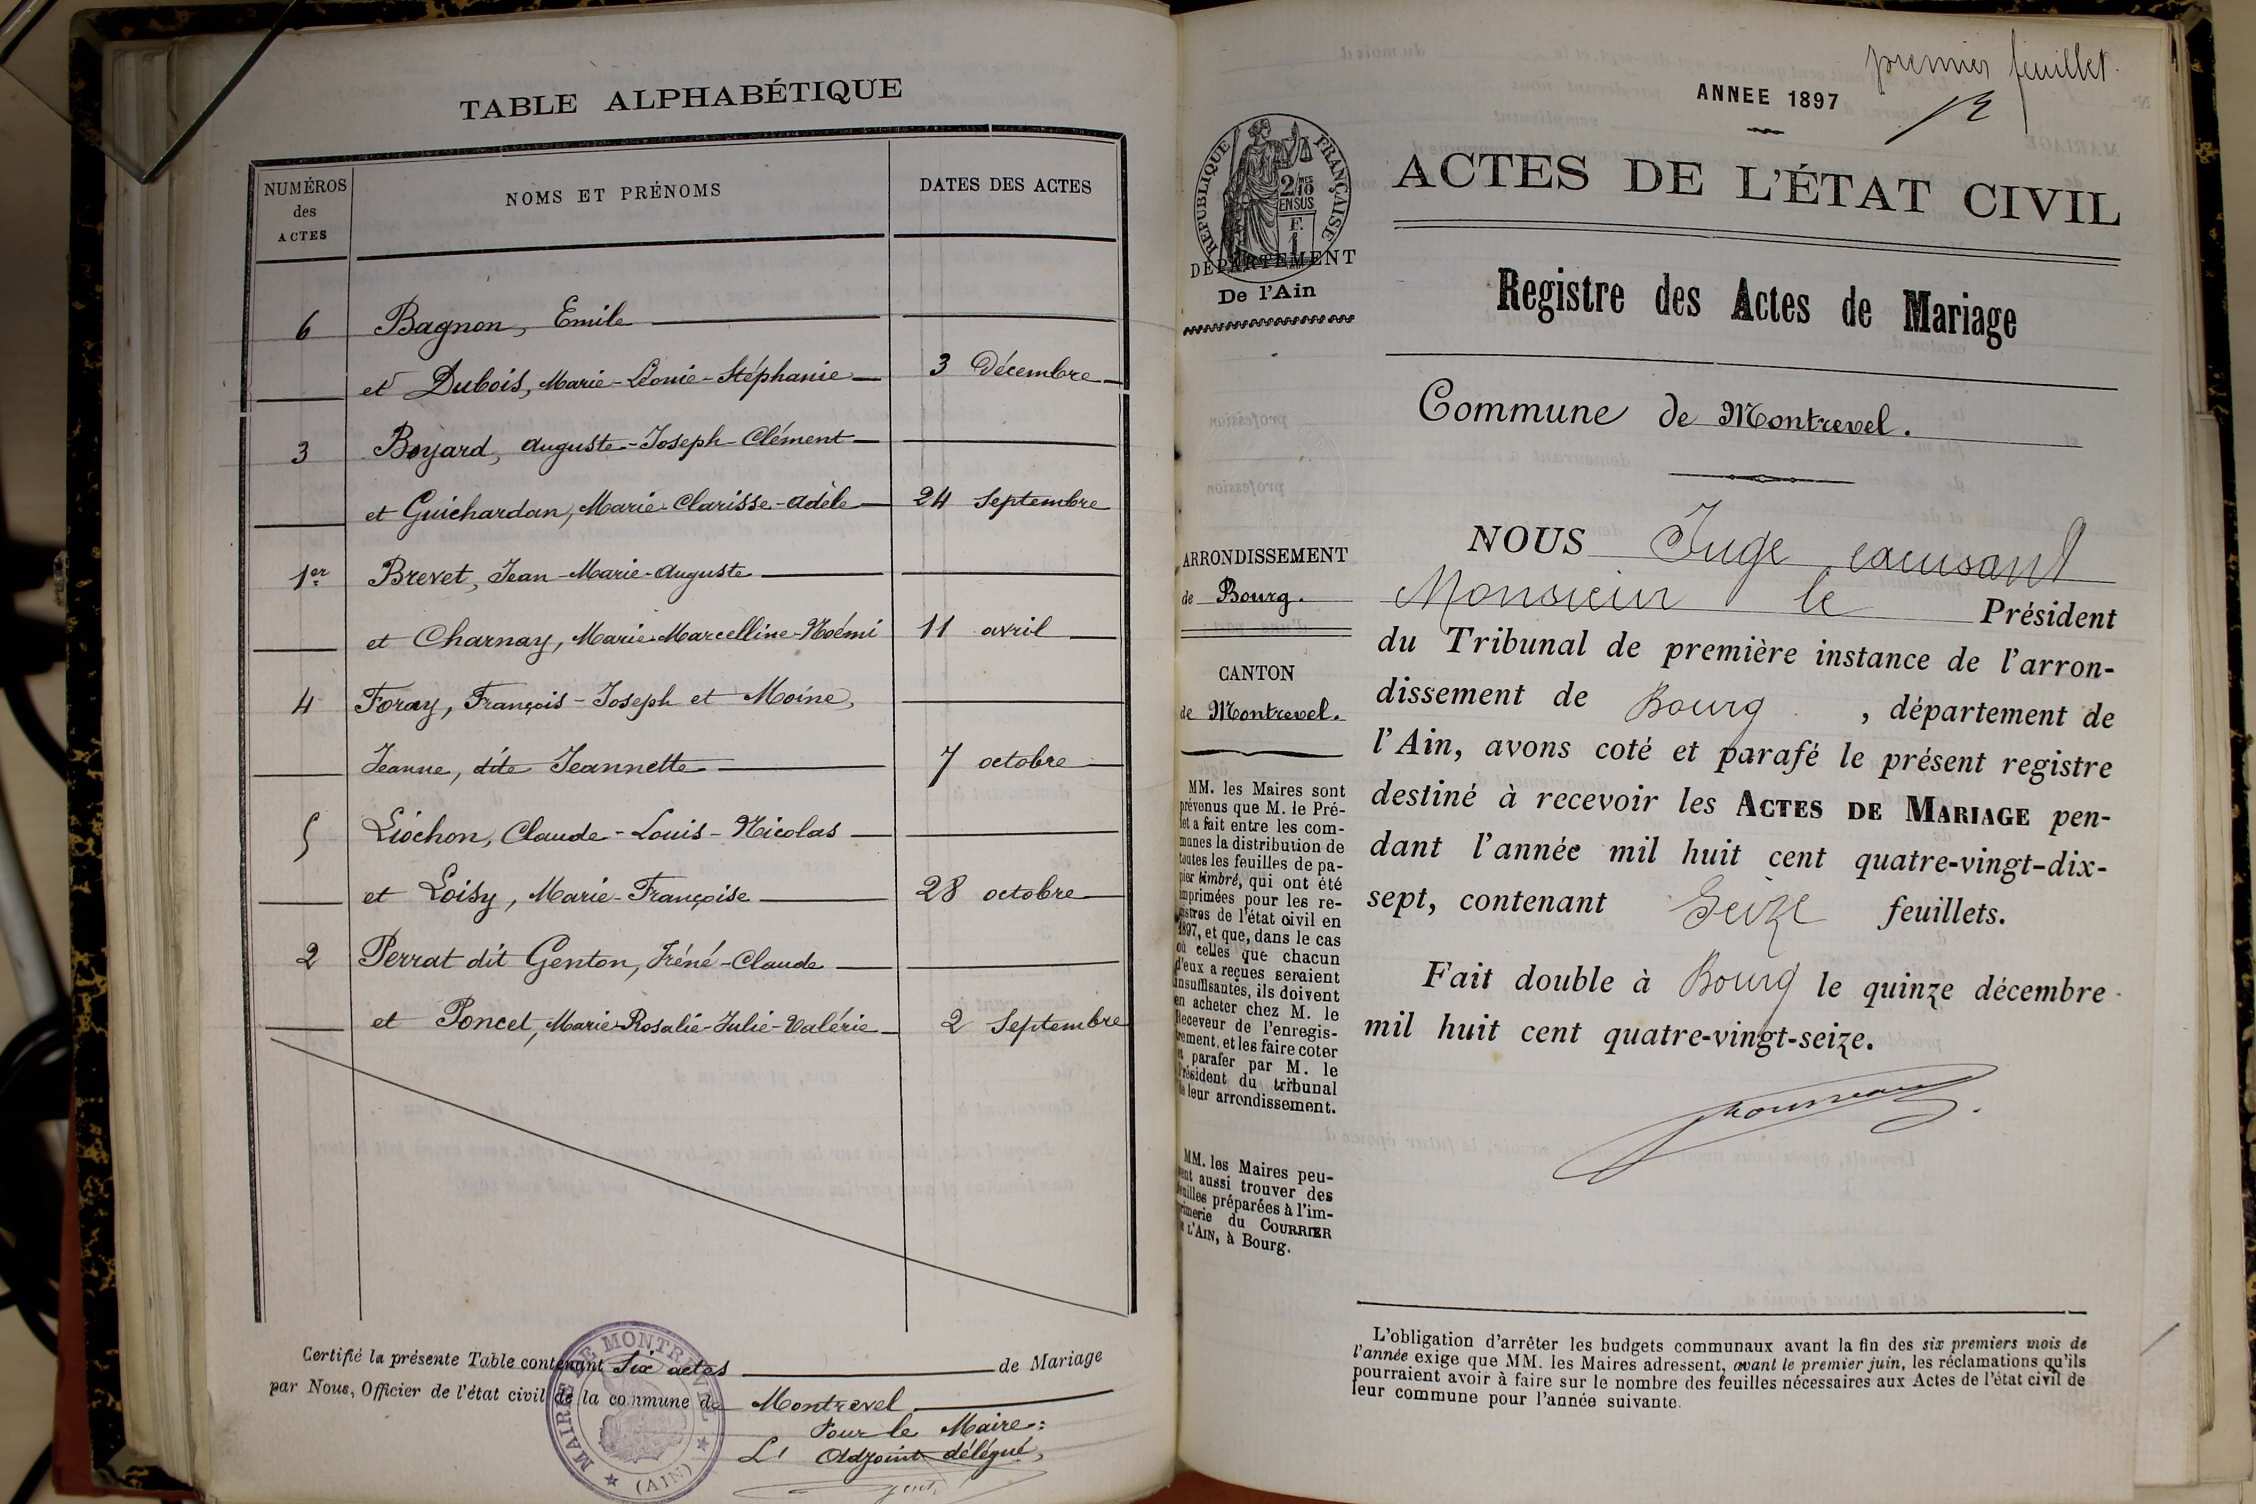 TABLE ALPHABÉTIQUE
NUMÉROS
des
ACTES
NOMS ET PRÉNOMS
DATES DES ACTES
6 Bagnon, Emile
et Dubois, Marie-Léonie-Stéphanie 3 Décembre
3 Boyard, Auguste-Joseph-Clément
et Guichardan, Marie-Clarisse-Adèle 24 Septembre
1er Brevet, Jean-Marie-Auguste
et Charnay, Marie-Marcelline-Noémi 11 avril
4 Foray, François-Joseph et Moine,
Jeanne, dite Jeannette 7 octobre
5 Liochon, Claude-Louis-Nicolas
et Loisy, Marie-Françoise 28 octobre
2 Perrat dit Genton, Iréné-Claude
et Poncet, Marie-Rosalie-Julie-Valérie 2 Septembre
Certifié la présente Table contenant Six actes de Mariage
par Nous, Officier de l'état civil de la commune de Montrevel
Pour le Maire:
L' Adjoint délégué,
MAIRIE DE MONTREVEL
(AIN)
premier feuillet
ANNEE 1897
RÉPUBLIQUE FRANÇAISE
2/10 MES
EN SUS
F.
1
DÉPARTEMENT
De l'Ain
ACTES DE L'ÉTAT CIVIL
Registre des Actes de Mariage
Commune de Montrevel.
ARRONDISSEMENT
de Bourg.
CANTON
de Montrevel.
MM. les Maires sont
prévenus que M. le Pré-
fet a fait entre les com-
munes la distribution de
toutes les feuilles de pa-
pier timbré, qui ont été
imprimées pour les re-
gistres de l'état civil en
1897, et que, dans le cas
où celles que chacun
d'eux a reçues seraient
insuffisantes, ils doivent
en acheter chez M. le
Receveur de l'enregis-
trement, et les faire coter
et parafer par M. le
Président du tribunal
de leur arrondissement.
MM. les Maires peu-
vent aussi trouver des
feuilles préparées à l'im-
primerie du COURRIER
DE L'AIN, à Bourg.
NOUS Juge excusant
Monsieur le Président
du Tribunal de première instance de l'arron-
dissement de Bourg, département de
l'Ain, avons coté et parafé le présent registre
destiné à recevoir les ACTES DE MARIAGE pen-
dant l'année mil huit cent quatre-vingt-dix-
sept, contenant Seize feuillets.
Fait double à Bourg le quinze décembre
mil huit cent quatre-vingt-seize.
L'obligation d'arrêter les budgets communaux avant la fin des six premiers mois de
l'année exige que MM. les Maires adressent, avant le premier juin, les réclamations qu'ils
pourraient avoir à faire sur le nombre des feuilles nécessaires aux Actes de l'état civil de
leur commune pour l'année suivante.